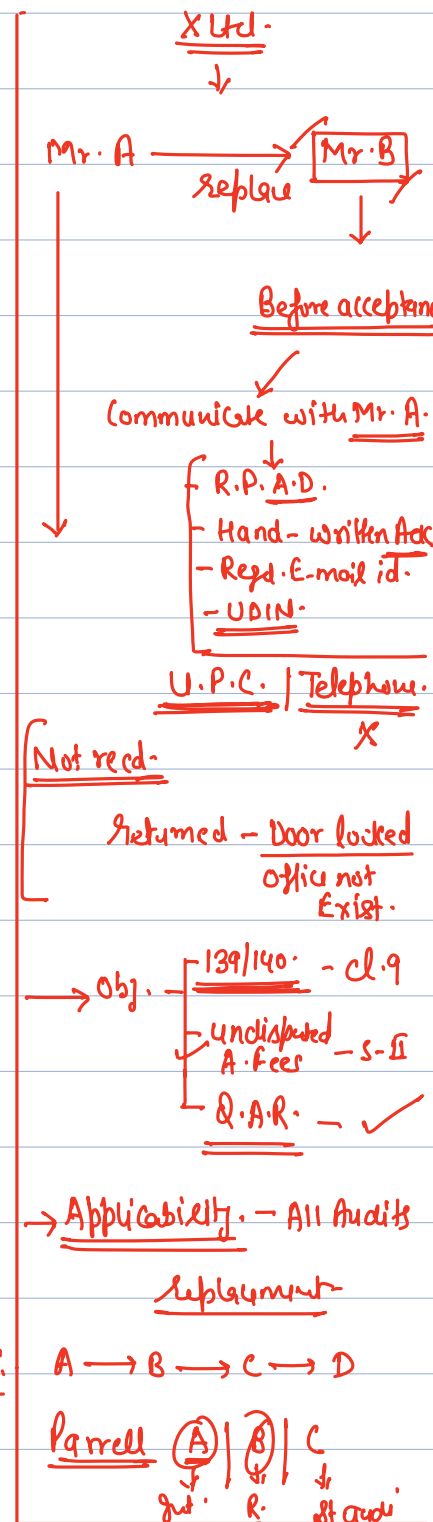 X Ltd.
Mr. A Mr. B
replace
Before accepting
Communicate with Mr. A.
- R.P.A.D.
- Hand - written Ack
- Regd. E-mail id.
- UDIN.
U.P.C. | Telephone.
X
Not recd.
returned - Door locked
office not
Exist.
Obj. - 139/140. - cl.9
- undisputed
A. fees - S-II
- Q.A.R. -
Applicability. - All Audits
replacement
A → B → C → D
Parrell A | B | C
Int. R. St audi